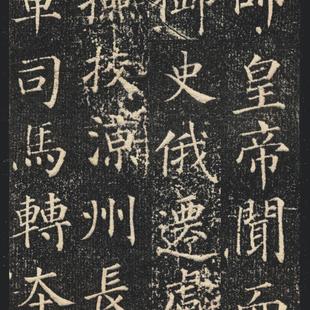 師皇帝聞而
御史俄遷
按涼州長
軍司馬轉本